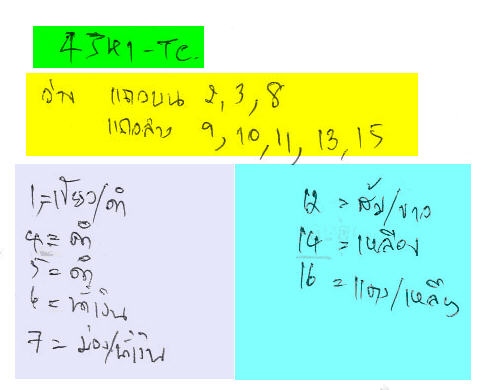 ว่าง แถวบน 2, 3, 8
แถวล่าง 9, 10, 11, 13, 15
1 = เขียว/ดำ
4 = ดำ
5 = ดำ
6 = น้ำเงิน
7 = ม่วง/น้ำเงิน
12 = ส้ม/ขาว
14 = เหลือง
16 = แดง/เหลือง